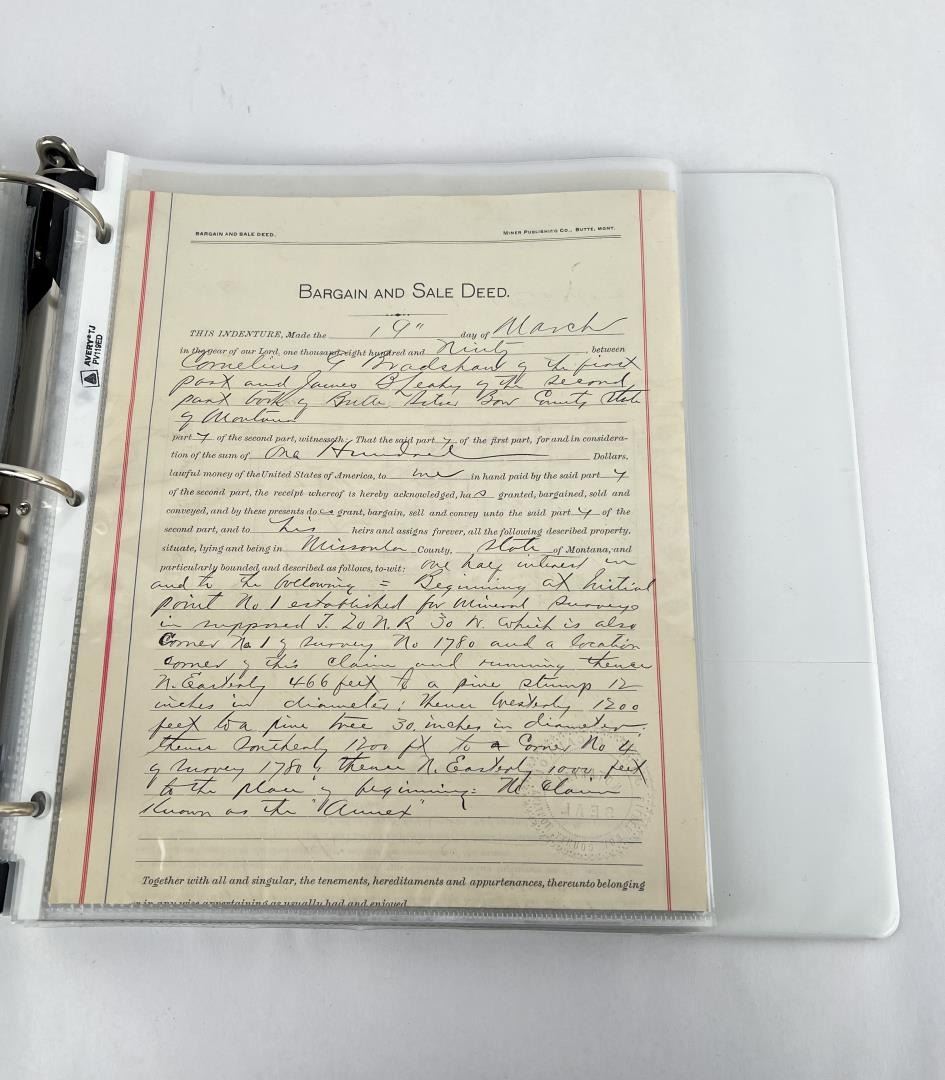 AVERY® TJ
PV119ED
BARGAIN AND SALE DEED. MINER PUBLISHING CO., BUTTE, MONT.
BARGAIN AND SALE DEED.
THIS INDENTURE, Made the 19" day of March
in the year of our Lord, one thousand eight hundred and Ninty, between
Cornelius G Bradshaw of the first
part and James B Leahy of the second
part both of Butte Silver Bow County State
of Montana
part y of the second part, witnesseth: That the said part y of the first part, for and in considera-
tion of the sum of One Hundred Dollars,
lawful money of the United States of America, to me in hand paid by the said part y
of the second part, the receipt whereof is hereby acknowledged, has granted, bargained, sold and
conveyed, and by these presents does grant, bargain, sell and convey unto the said part y of the
second part, and to his heirs and assigns forever, all the following described property,
situate, lying and being in Missoula County, State of Montana, and
particularly bounded and described as follows, to-wit: one half interest in
and to the following = Beginning at Initial
point No 1 established for mineral surveys
in supposed T. 20 N. R 30 W. which is also
Corner No 1 of survey No 1780 and a location
corner of this claim and running thence
N. Easterly 466 feet to a pine stump 12
inches in diameter; thence Westerly 1200
feet to a pine tree 30 inches in diameter
thence Southerly 1200 ft to Corner No 4
of survey 1780; thence N. Easterly 1000 feet
to the place of beginning: The Claim
Known as the "Annex"
SEAL
Together with all and singular, the tenements, hereditaments and appurtenances, thereunto belonging
or in any wise appertaining as usually had and enjoyed